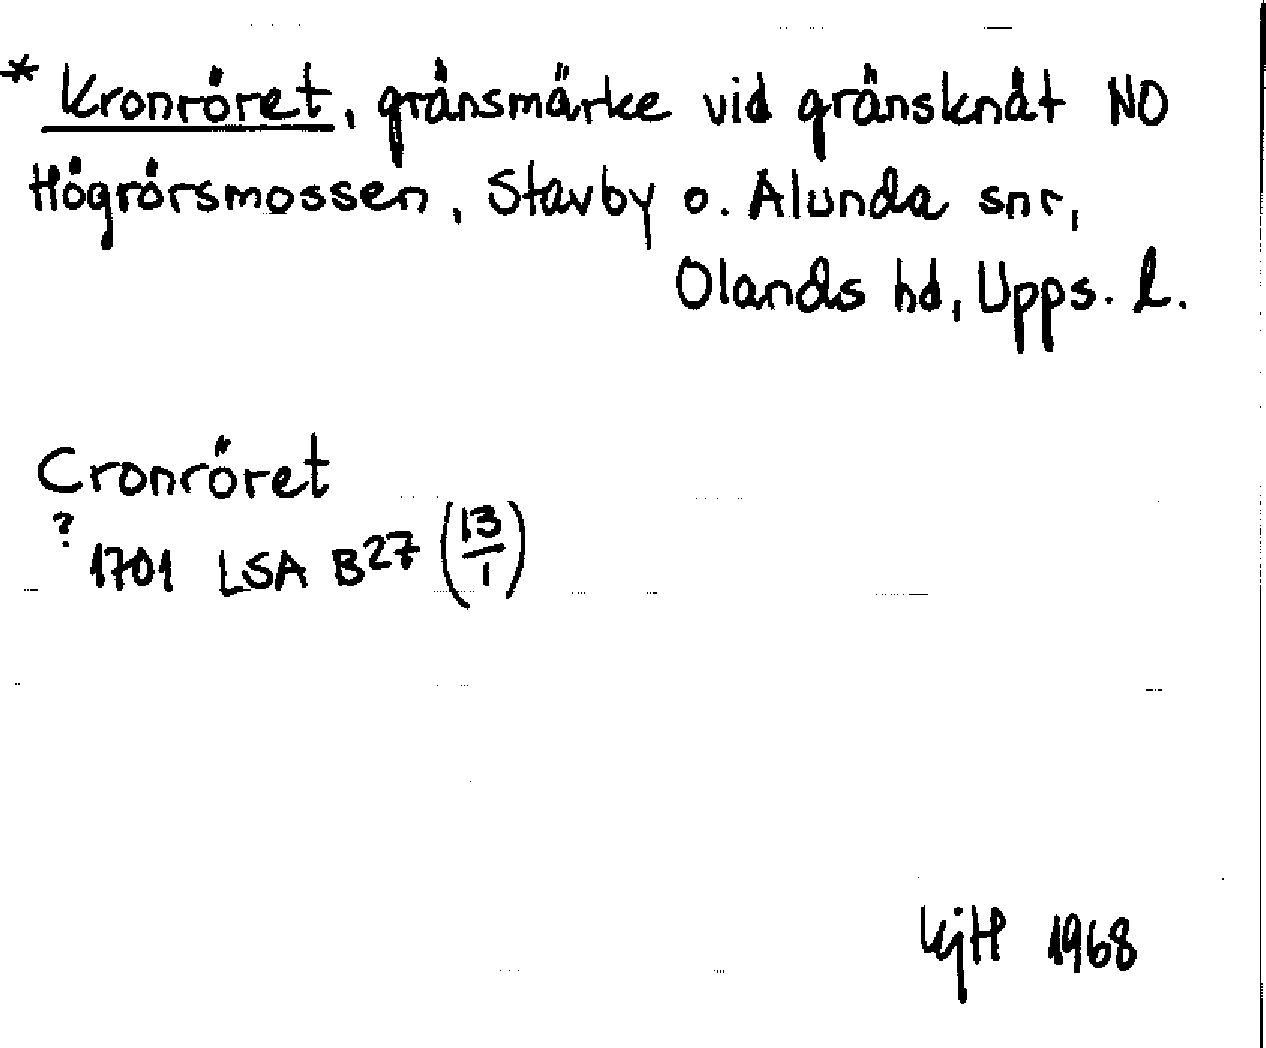 * Kronröret, gränsmärke vid gränsknåt NO
Högrörsmossen, Stavby o. Alunda snr,
Olands hd, Upps. l.
Cronröret
? 1701 LSA B27 (13/1)
KjH 1968